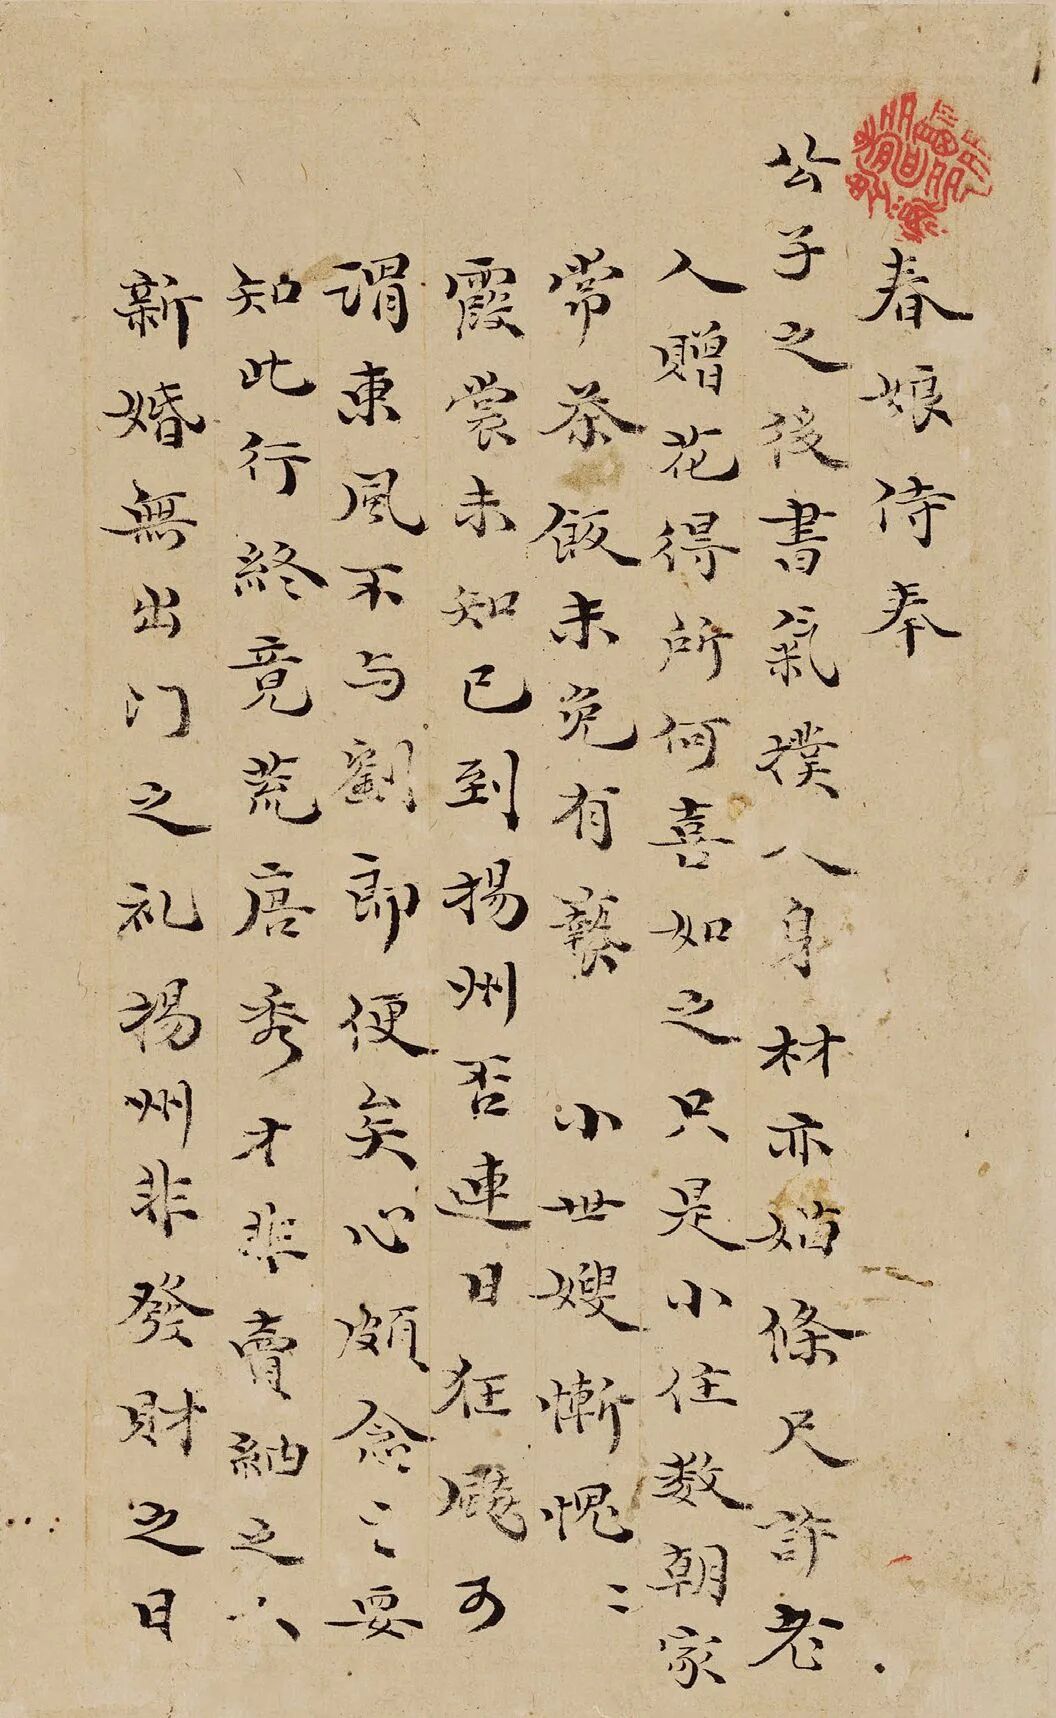 春娘侍奉
公子之後書氣撲人身材亦苗條尺許老
人贈花得所何喜如之只是小住数朝家
常茶飯未免有褻 小世嫂慚愧〻
霞裳未知已到揚州否連日狂颷可
謂東風不与劉郎便矣心頗念〻要
知此行終竟荒唐秀才非賣納之人
新婚無出门之礼揚州非發財之日